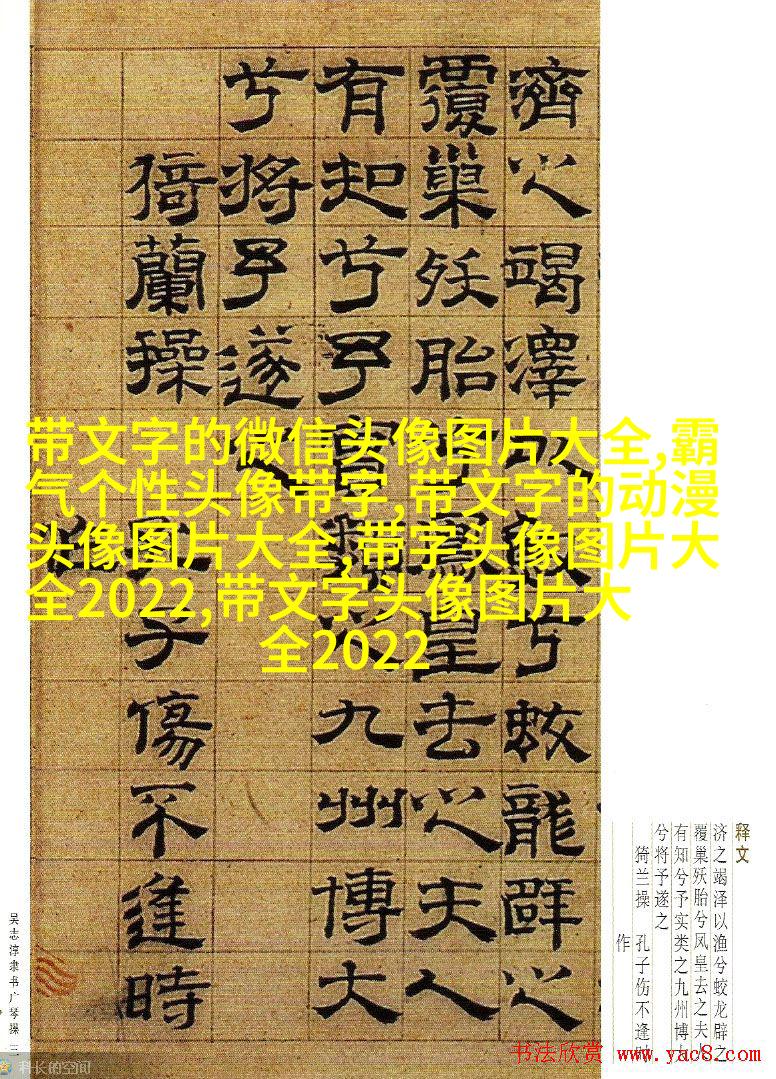 濟之竭澤以漁兮蛟龍辟之
覆巢殀胎兮鳳皇去之夫人
有知兮予實類之九州博大
兮將予遂之
猗蘭操 孔子傷不逢時
作
带文字的微信头像图片大全,霸
气个性头像带字,带文字的动漫
头像图片大全,带字头像图片大
全2022,带文字头像图片大
全2022
释文
济之竭泽以渔兮蛟龙辟之
覆巢殀胎兮凤皇去之夫
有知兮予实类之九州博
兮将予遂之
猗兰操 孔子伤不逢
作
吴志淳隶书广琴操 三
科长的空间
书法欣赏 www.yac8.com